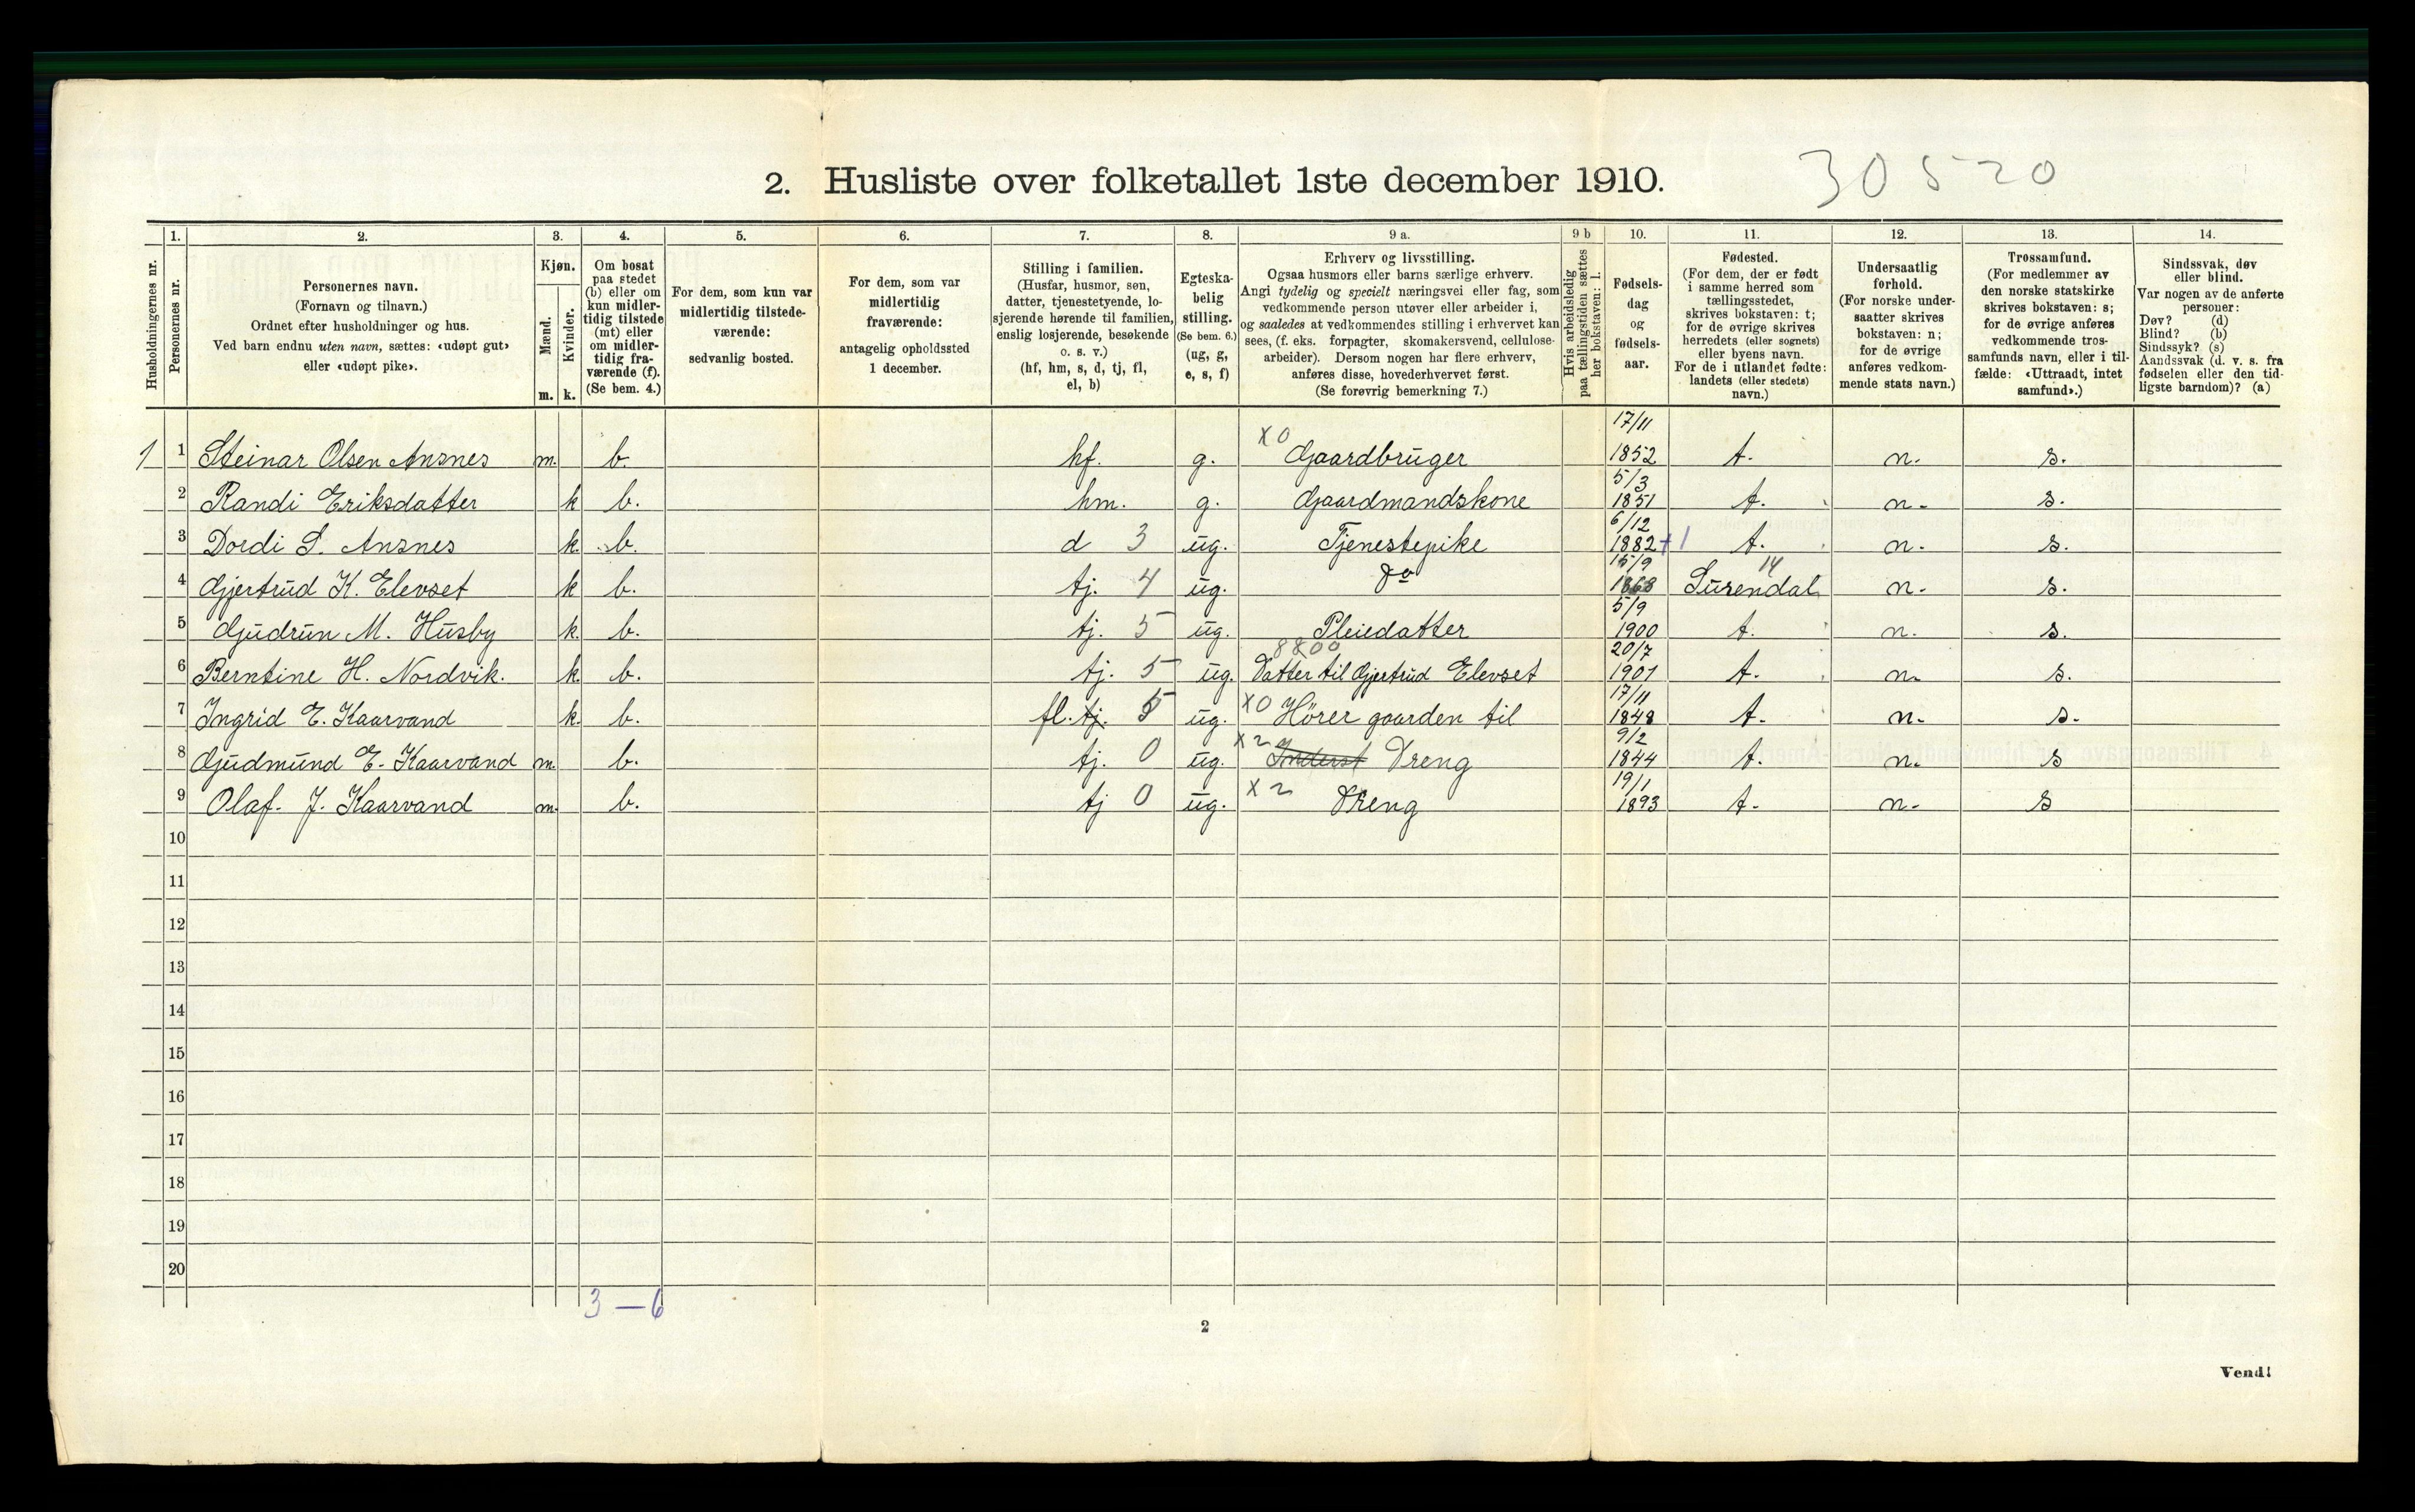 2. Husliste over folketallet 1ste december 1910.
30520
Husholdningernes nr.
1.
Personernes nr.
2.
Personernes navn.
(Fornavn og tilnavn.)
Ordnet efter husholdninger og hus.
Ved barn endnu uten navn, sættes: «udøpt gut»
eller «udøpt pike».
3.
Kjøn.
Mænd.
Kvinder.
m. k.
4.
Om bosat
paa stedet
(b) eller om
kun midler-
tidig tilstede
(mt) eller
om midler-
tidig fra-
værende (f).
(Se bem. 4.)
5.
For dem, som kun var
midlertidig tilstede-
værende:
sedvanlig bosted.
6.
For dem, som var
midlertidig
fraværende:
antagelig opholdssted
1 december.
7.
Stilling i familien.
(Husfar, husmor, søn,
datter, tjenestetyende, lo-
sjerende hørende til familien,
enslig losjerende, besøkende
o. s. v.)
(hf, hm, s, d, tj, fl,
el, b)
8.
Egteska-
belig
stilling.
(Se bem. 6.)
(ug, g,
e, s, f)
9 a.
Erhverv og livsstilling.
Ogsaa husmors eller barns særlige erhverv.
Angi tydelig og specielt næringsvei eller fag, som
vedkommende person utøver eller arbeider i,
og saaledes at vedkommendes stilling i erhvervet kan
sees, (f. eks. forpagter, skomakersvend, cellulose-
arbeider). Dersom nogen har flere erhverv,
anføres disse, hovederhvervet først.
(Se forøvrig bemerkning 7.)
9 b
Hvis arbeidsledig
paa tællingstiden sættes
her bokstaven: l.
10.
Fødsels-
dag
og
fødsels-
aar.
11.
Fødested.
(For dem, der er født
i samme herred som
tællingsstedet,
skrives bokstaven: t;
for de øvrige skrives
herredets (eller sognets)
eller byens navn.
For de i utlandet fødte:
landets (eller stedets)
navn.)
12.
Undersaatlig
forhold.
(For norske under-
saatter skrives
bokstaven: n;
for de øvrige
anføres vedkom-
mende stats navn.)
13.
Trossamfund.
(For medlemmer av
den norske statskirke
skrives bokstaven: s;
for de øvrige anføres
vedkommende tros-
samfunds navn, eller i til-
fælde: «Uttraadt, intet
samfund».)
14.
Sindssvak, døv
eller blind.
Var nogen av de anførte
personer:
Døv? (d)
Blind? (b)
Sindssyk? (s)
Aandssvak (d. v. s. fra
fødselen eller den tid-
ligste barndom)? (a)
1 1 Steinar Olsen Ansnes m. b. hf. g. X0 Gaardbruger 17/11 1852 t. n. s.
2 Randi Eriksdatter k b. hm. g. Gaardmandskone 5/3 1851 t. n. s.
3 Dordi S. Ansnes k. b. d 3 ug. Tjenestepike 6/12 1882 +1 t. n. s.
4 Gjertrud K. Elevset k b. tj. 4 ug. Do 15/9 1868 14 Surendal n. s.
5 Gudrun M. Husby k. b. tj. 5 ug. Pleiedatter 5/9 1900 t. n. s.
6 Berntine H. Nordvik. k. b. tj. 5 ug. 8800 Datter til Gjertrud Elevset 20/7 1901 t. n. s.
7 Ingrid E. Kaarvand k. b. fl. tj. 5 ug. X0 Hörer gaarden til 17/11 1848 t. n. s.
8 Gudmund E. Kaarvand m. b. tj. 0 ug. X2 Inderst Dreng 9/2 1844 t. n. s
9 Olaf. J. Kaarvand m. b. tj 0 ug. X2 Dreng 19/1 1893 t. n. s
10
11
12
13
14
15
16
17
18
19
20
3 — 6
2
Vend!